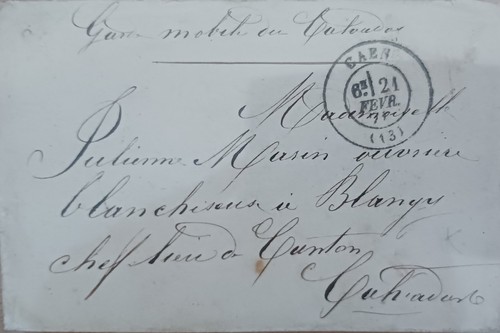 Garde mobile du Calvados
CAEN
6E/ 21
FEVR.
(13)
Mademoiselle
Julienne Marin ouvrière
blanchiseuse à Blangy
chef lieu de Canton
Calvados